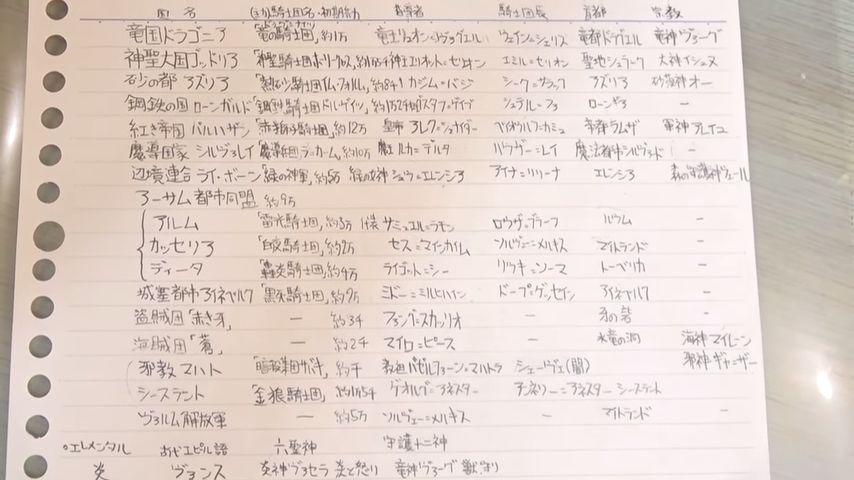 国名 騎士団名・初期総力 指導者 騎士団長 首都 宗教
竜国ドラゴニア 「竜の騎士団」約1万 竜王リュオン=ヴァヴェル ウェイン=シェリズ 竜都ドラグエル 竜神ヴァーグ
神聖大国ゴッドリア 神王エリオット=セリオン エミル=セリオン 聖地シュラーク 大神イシュヌ
砂の都アズリア カジム=バジ シーク=サラック アズリア 砂海神オー
鋼鉄の国ローンガルド シュラル=ファ ローンギア ー
紅き帝国バルハザン 約12万 皇帝アレク=シュナイダー ベイオウルフ=カミュ 帝都ラムザ 軍神ブレイユ
魔導国家シルヴァレイ 約10万 ルカ=デルタ ルヴァー=レイ 魔法都市シルヴァンド ー
辺境連合ライ・ボーン 「緑の神軍」約5万 緑の女神シュウ=エレンシア アイナ=リリーナ エレンシア 森の守護神ヴェール
アーサム都市同盟 約9万
アルム 「雷光騎士団」約3万 代表サミュエル=ラモン ロウザ=ブラーフ ルウム ー
カッセリア 「白夜騎士団」約2万 セス=マインカイム ソルヴェー=メルキス マイトランド ー
ディータ 「轟炎騎士団」約4万 ライゴット=シー リツキ=ソーマ トーベリカ ー
城塞都市アイネベルク 「黒矢騎士団」約9万 ミドー=ミルヒハイン ドープ=ゲッセイン アイネベルク ー
盗賊団「赤き牙」 ー 約3千 ファング=スカッリオ ー 牙の砦 ー
海賊団「蒼」 ー 約2千 マイロ=ピース ー 水竜の洞 海神マイレーン
邪教マハト 約千 教祖バゼルファーン=マハトラ シェードヴェ(闇) 邪神ギャーザー
シースラント 「金狼騎士団」約1万5千 ゲオルグ=アネスター アンネリー=アネスター シースラント
ヴァルム解放軍 ー 約5万 ソルヴェー=メルキス ー マイトランド ー
○エレメンタル 古代エピル語 六聖神 守護十二神
炎 ヴァンス 炎神ヴァセラ 炎と怒り 竜神ヴァーグ 獣、守り